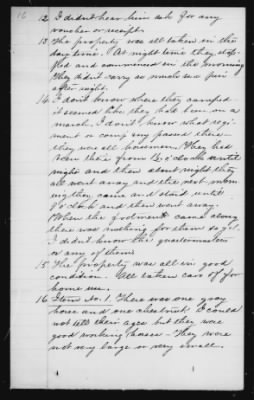 16
12 I didn't hear him ask for any
voucher or receipt.
13 The property was all taken in the
day time. At night time they stop-
ped and commenced in the morning.
They didn't carry so much as first
after night.
14 I don't know where they camped
it seemed like they had been on a
march. I don't know what regi-
ment or company passed there
they were all horsemen. They had
been there from 12 o'clock until
night and then about night they
all went away and the next morn-
ing they came and staid until
o'clock and then went away.
When the footmen came along
there was nothing for them to get.
I didn't know the quartermasters
or any of them
15 The property was all in good
condition. All taken care of for
home use.
16 Item No. 1. There was one gray
horse and one chestnut I could
not tell their ages but they were
good working horses - They were
not very large or very small.